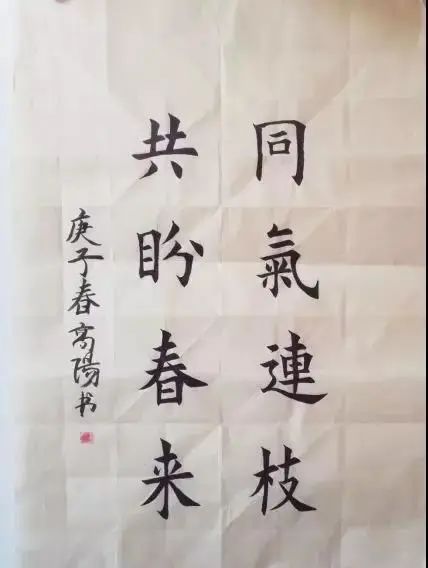 同氣連枝
共盼春来
庚子春高陽书